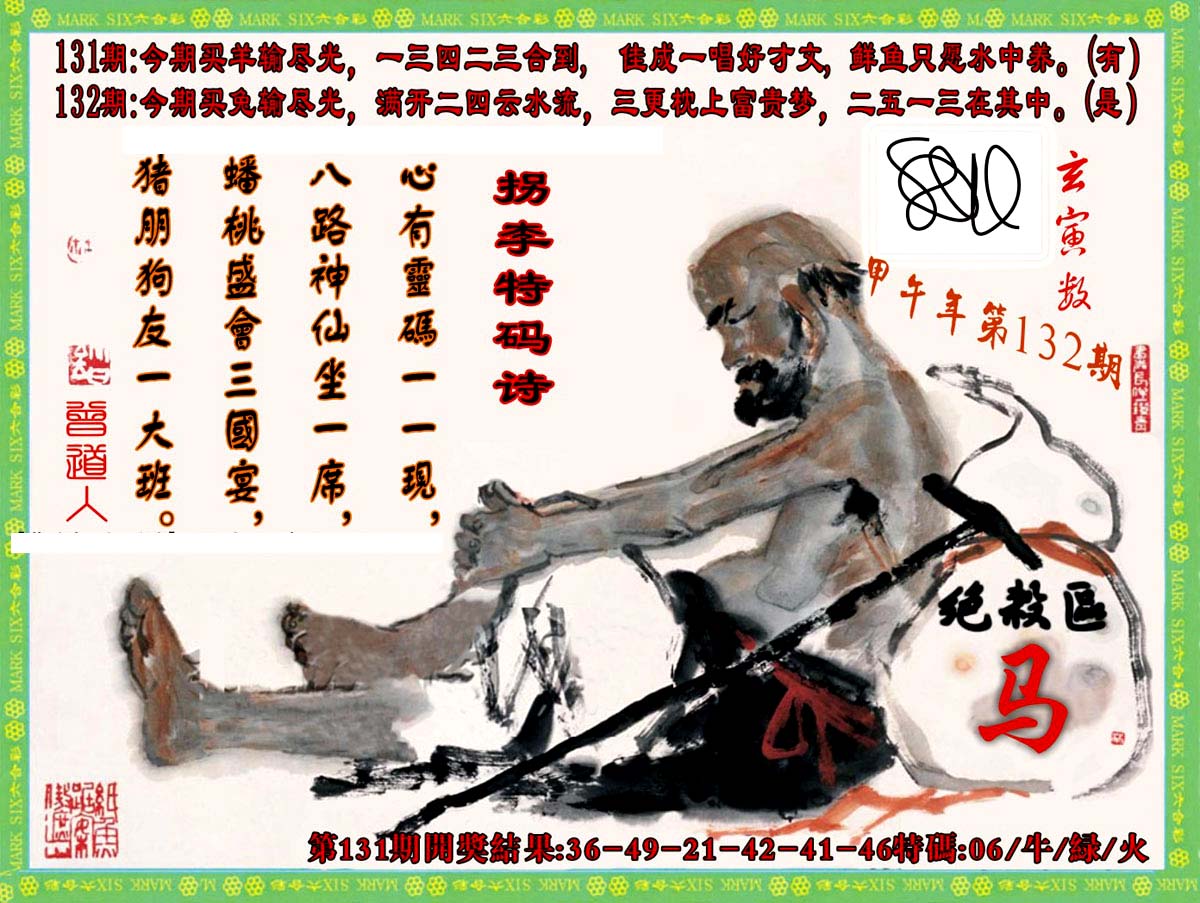 MARK SIX六合彩 MARK SIX六合彩 MARK SIX六合彩 MARK SIX六合彩 MARK SIX六合彩 MARK SIX六合彩
131期:今期买羊输尽光，一三四二三合到，佳成一唱好才文，鲜鱼只愿水中养。(有)
132期:今期买兔输尽光，满开二四云水流，三更枕上富贵梦，二五一三在其中。(是)
玄寅数
甲午年第132期
拐李特码诗
心有靈碼一一現，
八路神仙坐一席，
蟠桃盛會三國宴，
猪朋狗友一大班。
曾道人
绝殺區
马
第131期開獎結果:36-49-21-42-41-46特碼:06/牛/緑/火